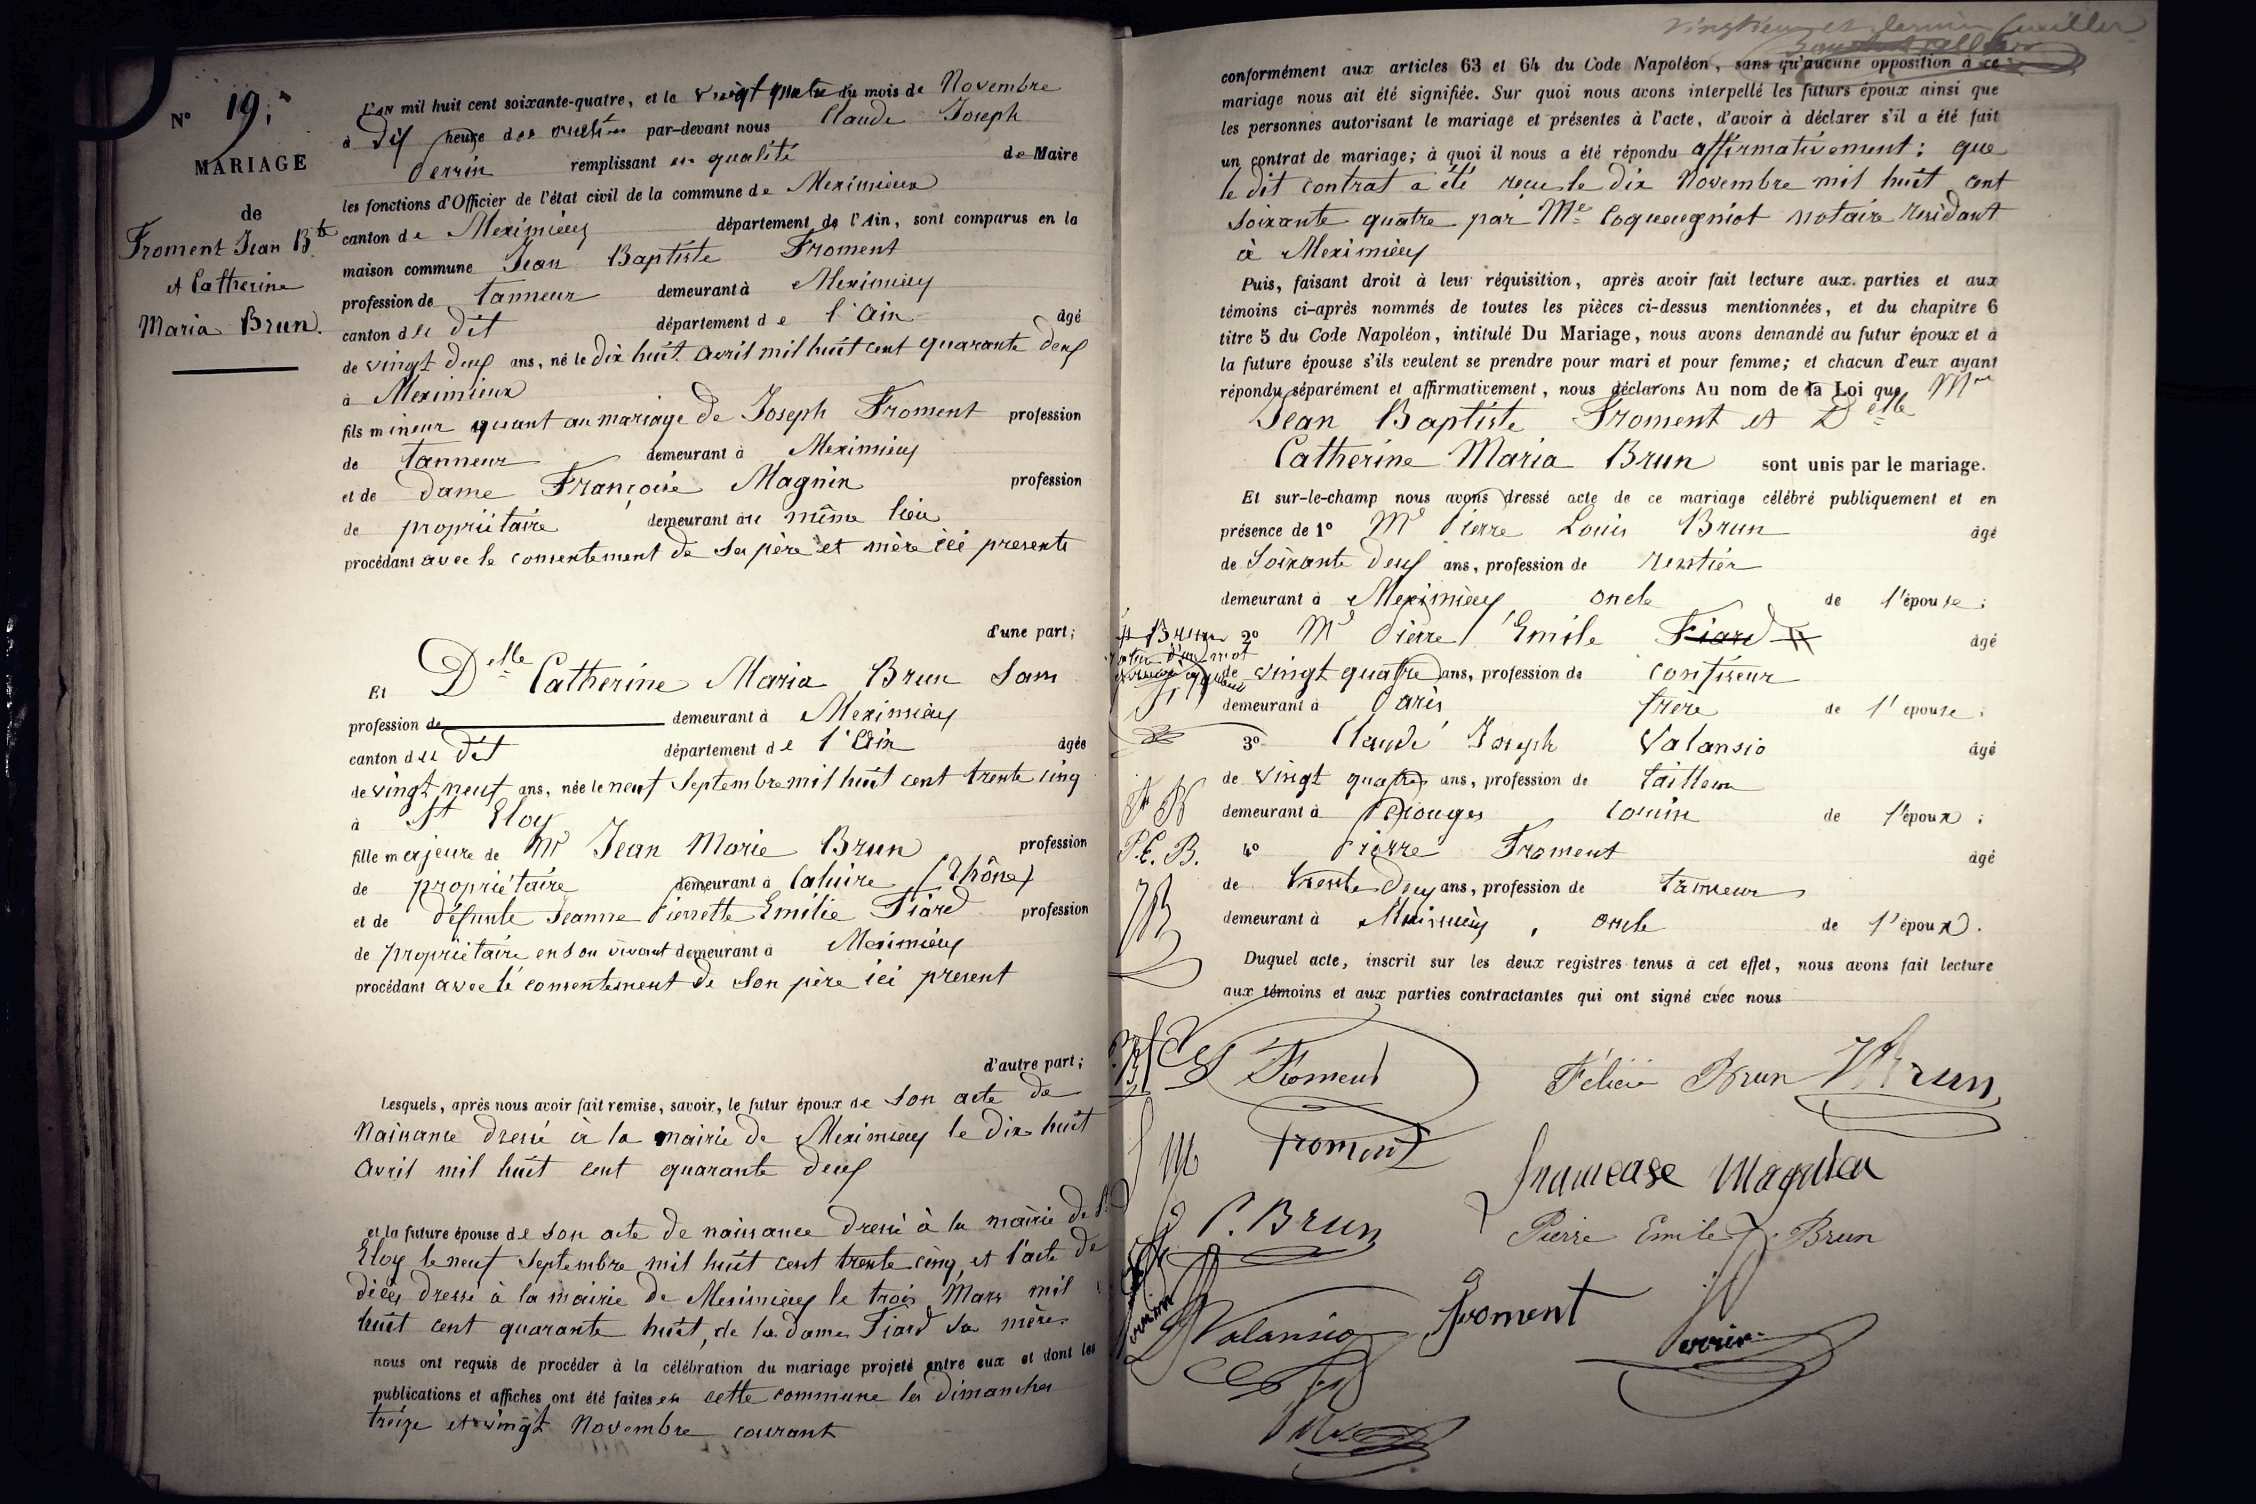 N° 19.
MARIAGE
de
Froment Jean Bte
et Catherine
Maria Brun.
L'an mil huit cent soixante-quatre, et le vingt quatre du mois de Novembre
à dix heure des matin par-devant nous Claude Joseph
Perrin remplissant en qualité de Maire
les fonctions d'Officier de l'état civil de la commune de Meximieux
canton de Meximieux département de l'Ain, sont comparus en la
maison commune Jean Baptiste Froment
profession de tanneur demeurant à Meximieux
canton du dit département de l'Ain âgé
de vingt deux ans, né le dix huit avril mil huit cent quarante deux
à Meximieux
fils mineur quant au mariage de Joseph Froment profession
de tanneur demeurant à Meximieux
et de dame Françoise Magnin profession
de propriétaire demeurant au même lieu
procédant avec le consentement de ses père et mère ici présents
d'une part;
Et Delle Catherine Maria Brun sans
profession de demeurant à Meximieux
canton du dit département de l'Ain âgée
de vingt neuf ans, née le neuf Septembre mil huit cent trente cinq
à St Eloy
fille majeure de Mr Jean Marie Brun profession
de propriétaire demeurant à Caluire (Rhône)
et de défunte Jeanne Pierrette Emilie Fiard profession
de propriétaire en son vivant demeurant à Meximieux
procédant avec le consentement de son père ici présent
d'autre part;
Lesquels, après nous avoir fait remise, savoir, le futur époux de son acte de
naissance dressé à la mairie de Meximieux le dix huit
avril mil huit cent quarante deux
et la future épouse de son acte de naissance dressé à la mairie de St
Eloy le neuf Septembre mil huit cent trente cinq, et l'acte de
décès dressé à la mairie de Meximieux le trois Mars mil
huit cent quarante huit, de la dame Fiard sa mère
nous ont requis de procéder à la célébration du mariage projeté entre eux et dont les
publications et affiches ont été faites en cette commune les dimanches
treize et vingt Novembre courant
vingtième et dernier feuillet
conformément aux articles 63 et 64 du Code Napoléon, sans qu'aucune opposition à ce
mariage nous ait été signifiée. Sur quoi nous avons interpellé les futurs époux ainsi que
les personnes autorisant le mariage et présentes à l'acte, d'avoir à déclarer s'il a été fait
un contrat de mariage; à quoi il nous a été répondu affirmativement: que
le dit contrat a été reçu le dix Novembre mil huit cent
soixante quatre par Me Coqueugniot notaire résidant
à Meximieux
Puis, faisant droit à leur réquisition, après avoir fait lecture aux parties et aux
témoins ci-après nommés de toutes les pièces ci-dessus mentionnées, et du chapitre 6
titre 5 du Code Napoléon, intitulé Du Mariage, nous avons demandé au futur époux et à
la future épouse s'ils veulent se prendre pour mari et pour femme; et chacun d'eux ayant
répondu séparément et affirmativement, nous déclarons Au nom de la Loi que Mr
Jean Baptiste Froment et Delle
Catherine Maria Brun sont unis par le mariage.
Et sur-le-champ nous avons dressé acte de ce mariage célébré publiquement et en
présence de 1° Mr Pierre Louis Brun âgé
de soixante deux ans, profession de rentier
demeurant à Meximieux oncle de l'épouse;
# Brun 2° Mr Pierre Emile Fiard # âgé
de vingt quatre ans, profession de confiseur
demeurant à Paris frère de l'épouse;
3° Claude Joseph Valansio âgé
de vingt quatre ans, profession de tailleur
demeurant à Pérouges cousin de l'époux;
P.E.B. 4° Pierre Froment âgé
de trente deux ans, profession de tanneur
demeurant à Meximieux, oncle de l'époux.
Duquel acte, inscrit sur les deux registres tenus à cet effet, nous avons fait lecture
aux témoins et aux parties contractantes qui ont signé avec nous
Froment Félicie Brun Brun
Froment
P. Brun Pierre Emile Brun
Valansio Froment Perrin